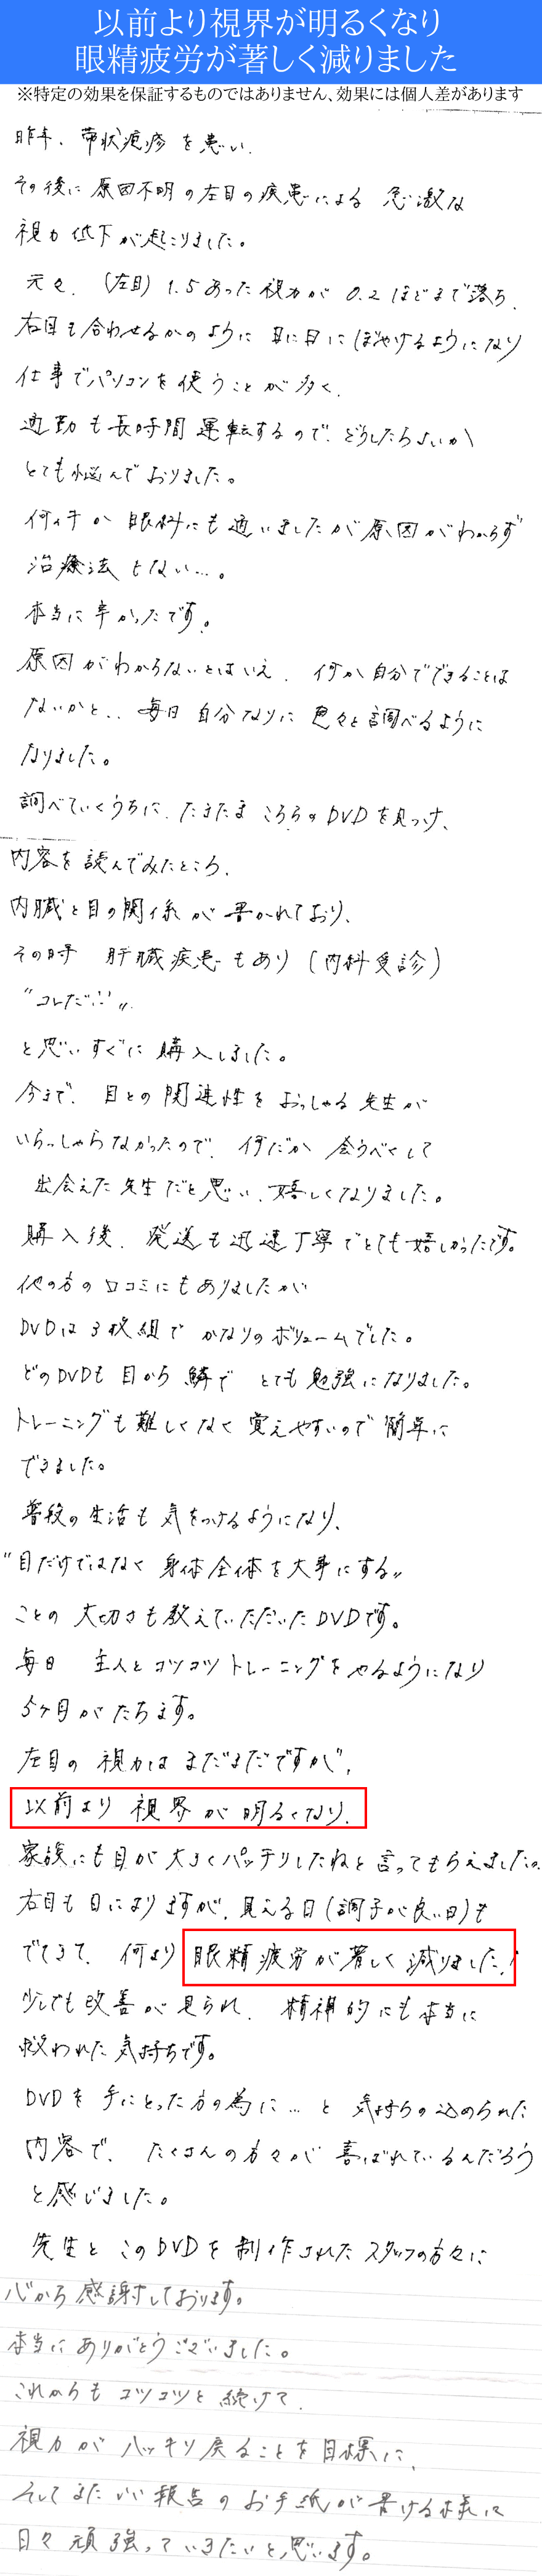 以前より視界が明るくなり
眼精疲労が著しく減りました
※特定の効果を保証するものではありません、効果には個人差があります
昨年、帯状疱疹を患い、
その後に原因不明の左目の疾患による急激な
視力低下が起こりました。
元々、(左目)1.5あった視力が0.2ほどまで落ち、
右目も合わせるかのように日に日にぼやけるようになり
仕事でパソコンを使うことが多く、
通勤も長時間運転するので、どうしたらよいか
とても悩んでおりました。
何ヶ所か眼科にも通いましたが原因がわからず
治療法もない…。
本当に辛かったです。
原因がわからないとはいえ、何か自分でできることは
ないかと‥毎日自分なりに色々と調べるように
なりました。
調べていくうちに、たまたまこちらのDVDを見つけ、
内容を読んでみたところ、
内臓と目の関係が書かれており、
その時 肝臓疾患もあり(内科受診)
"コレだ!!"
と思いすぐに購入しました。
今まで、目との関連性をおっしゃる先生が
いらっしゃらなかったので、何だか会うべくして
出会えた先生だと思い、嬉しくなりました。
購入後、発送も迅速丁寧でとても嬉しかったです。
他の方の口コミにもありましたが
DVDは3枚組でかなりのボリュームでした。
どのDVDも目から鱗でとても勉強になりました。
トレーニングも難しくなく覚えやすいので簡単に
できました。
普段の生活も気をつけるようになり、
"目だけではなく身体全体を大事にする"
ことの大切さも教えていただいたDVDです。
毎日 主人とコツコツトレーニングをやるようになり
5ヶ月がたちます。
左目の視力はまだまだですが、
以前より視界が明るくなり、
家族にも目が大きくパッチリしたねと言ってもらえました。
右目も日によりますが、見える日(調子が良い日)も
でてきて、何より眼精疲労が著しく減りました!
少しでも改善が見られ、精神的にも本当に
救われた気持ちです。
DVDを手にとった方の為に…と気持ちの込められた
内容で、たくさんの方々が喜ばれているんだろう
と感じました。
先生とこのDVDを制作されたスタッフの方々に
心から感謝しております。
本当にありがとうございました。
これからもコツコツと続けて、
視力がハッキリ戻ることを目標に、
そしてまたいい報告のお手紙が書ける様に
日々頑張っていきたいと思います。